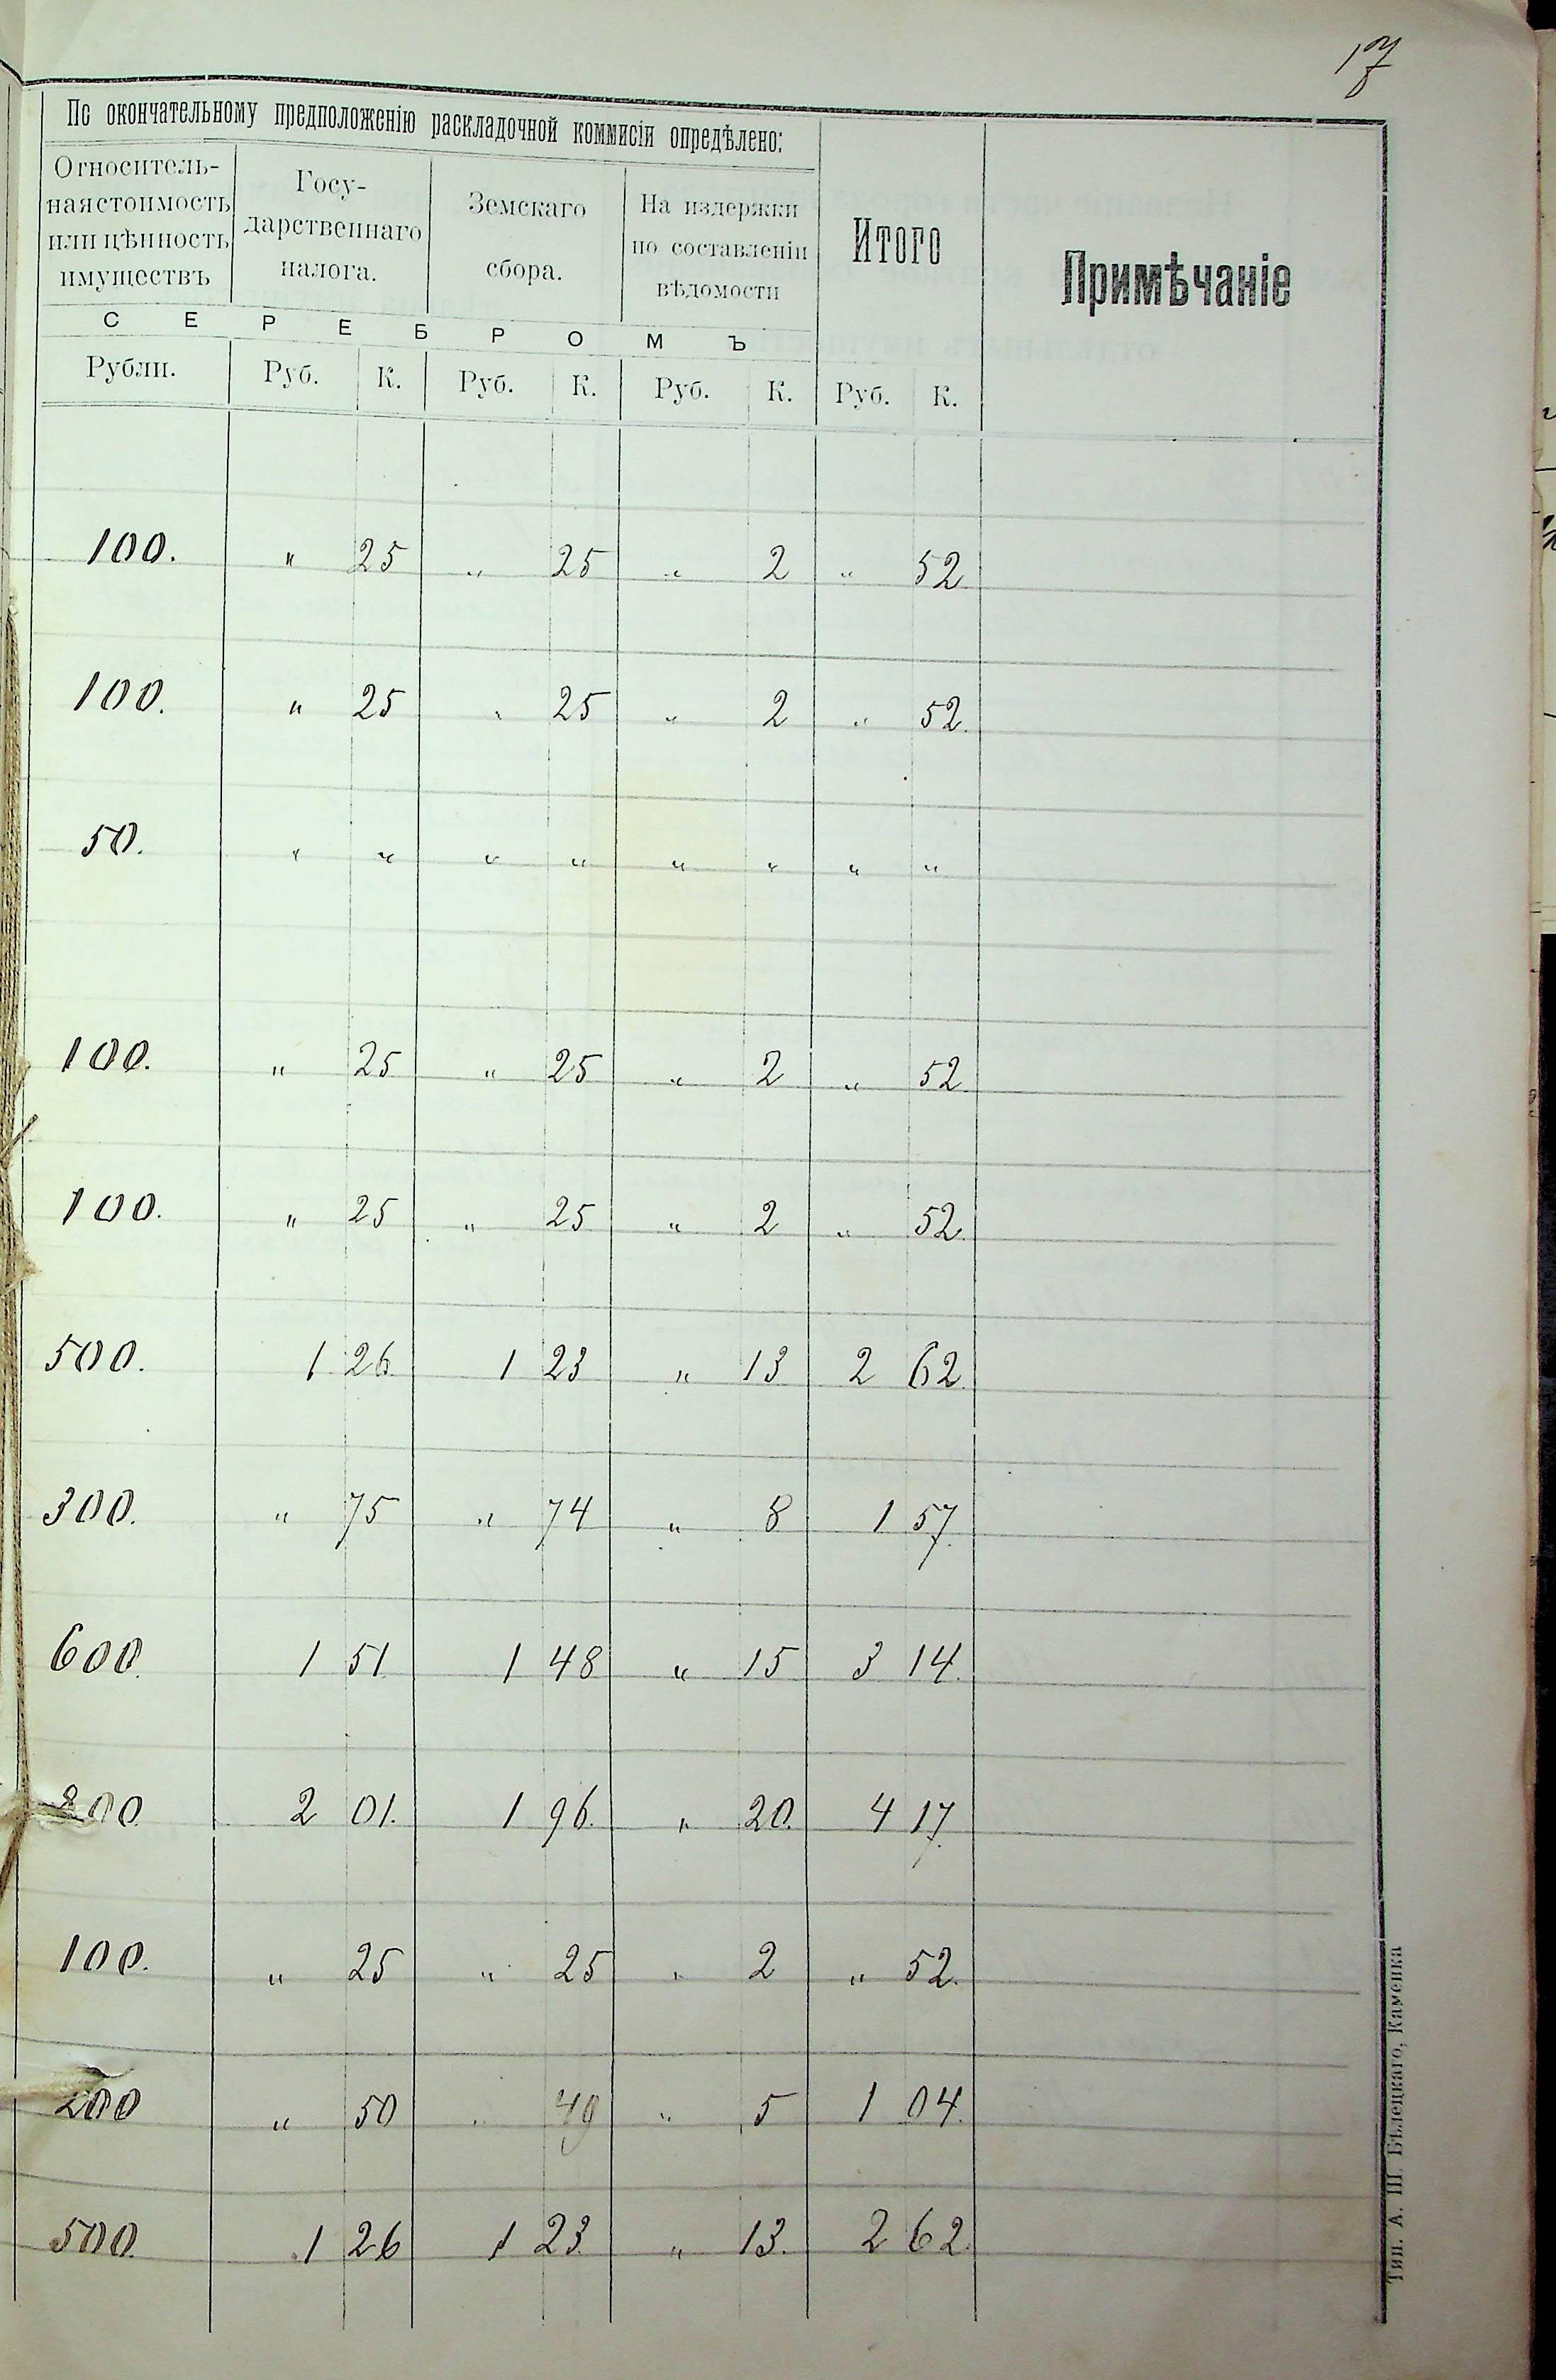 17
По окончательному предположенію раскладочной коммисіи опредѣлено:
Относитель-
ная стоимость
или цѣнность
имуществъ
Госу-
дарственнаго
налога.
Земскаго
сбора.
На издержки
по составленіи
вѣдомости
Итого
Примѣчаніе
С Е Р Е Б Р О М Ъ
Рубли. Руб. К. Руб. К. Руб. К. Руб. К.
100. " 25 " 25 " 2 " 52
100. " 25 " 25 " 2 " 52.
50. " " " " " " " "
100. " 25 " 25 " 2 " 52
100. " 25 " 25 " 2 " 52.
500. 1 26 1 23 " 13 2 62
300. " 75 " 74 " 8 1 57.
600. 1 51 1 48 " 15 3 14.
800 2 01. 1 96. " 20. 4 17.
100. " 25 " 25 " 2 " 52.
200 " 50 " 49 " 5 1 04.
500. 1 26 1 23 " 13. 2 62.
Тип. А. Ш. Бѣлецкаго, Каменка